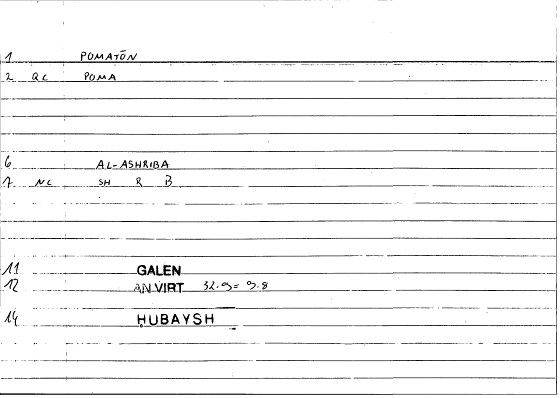 1 POMATŌN
2 QC POMA
6 AL-ASHRIBA
7 NC SH R B
11 GALEN
12 AN VIRT 32.9 = 9.8
14 ḤUBAYSH